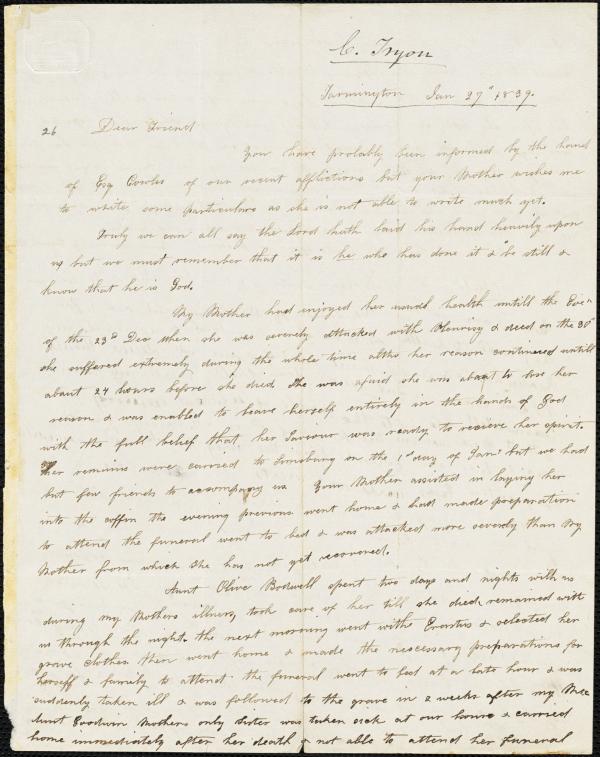 C. Tryon
Farmington Jan 27th 1839.
26 Dear Friend
You have probably been informed by the hand
of Esq Cowles of our recent afflictions but your Mother wishes me
to write some particulars as she is not able to write much yet.
Truly we can all say the Lord hath laid his hand heavily upon
us but we must remember that it is he who has done it & be still &
know that he is God.
My Mother had enjoyed her usual health untill the Eve
of the 23d Dec when she was severely attacked with Pleurisy & died on the 30th
she suffered extremely during the whole time altho her reason continued untill
about 24 hours before she died She was afraid she was about to lose her
reason & was enabled to leave herself entirely in the hands of God
with the full belief that her Saviour was ready to receive her spirit.
Her remains were carried to Simsbury on the 1st day of Jan. but we had
but few friends to accompany us Your Mother assisted in laying her
into the coffin the evening previous went home & had made preparation
to attend the funeral went to bed & was attacked more severely than My
Mother from which she has not yet recovered.
Aunt Olive Bodwell spent two days and nights with us
during my Mothers illness, took care of her till she died, remained with
us through the night. the next morning went with Erastus & selected her
grave clothes then went home & made the necessary preparations for
herself & family to attend the funeral went to bed at a late hour & was
suddenly taken ill & was followed to the grave in 2 weeks after my
Aunt Goodwin Mothers only sister was taken sick at our house & carried
home immediately after her death & not able to attend her funeral